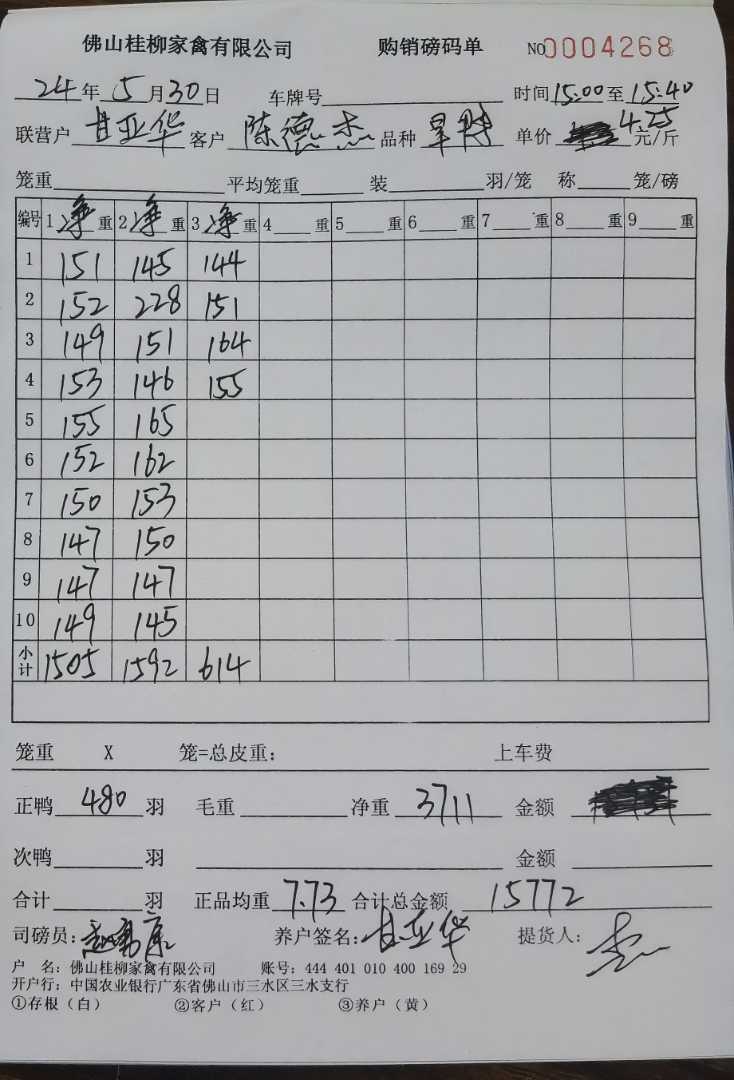 佛山桂柳家禽有限公司 购销磅码单 NO0004268
24年5月30日 车牌号 时间15:00至15:40
联营户 甘亚华 客户 陈德杰 品种 单价 4.25元/斤
笼重 平均笼重 装 羽/笼 称 笼/磅
编号 1净重 2净重 3净重 4 重 5 重 6 重 7 重 8 重 9 重
1 151 145 144
2 152 228 151
3 149 151 164
4 153 146 155
5 155 165
6 152 162
7 150 153
8 147 150
9 147 147
10 149 145
小计 1505 1592 614
笼重 X 笼=总皮重: 上车费
正鸭 480 羽 毛重 净重 3711 金额
次鸭 羽 金额
合计 羽 正品均重 7.73 合计总金额 15772
司磅员: 养户签名:甘亚华 提货人:
户 名:佛山桂柳家禽有限公司 账号:444 401 010 400 169 29
开户行:中国农业银行广东省佛山市三水区三水支行
①存根(白) ②客户(红) ③养户(黄)